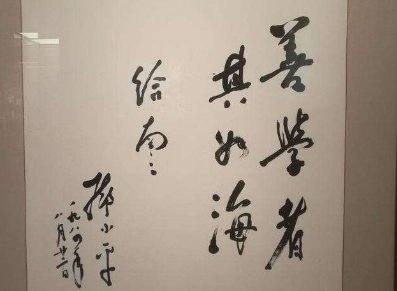 善學者
其如海
给南〻
鄧小平
一九八 年
八月廿二日